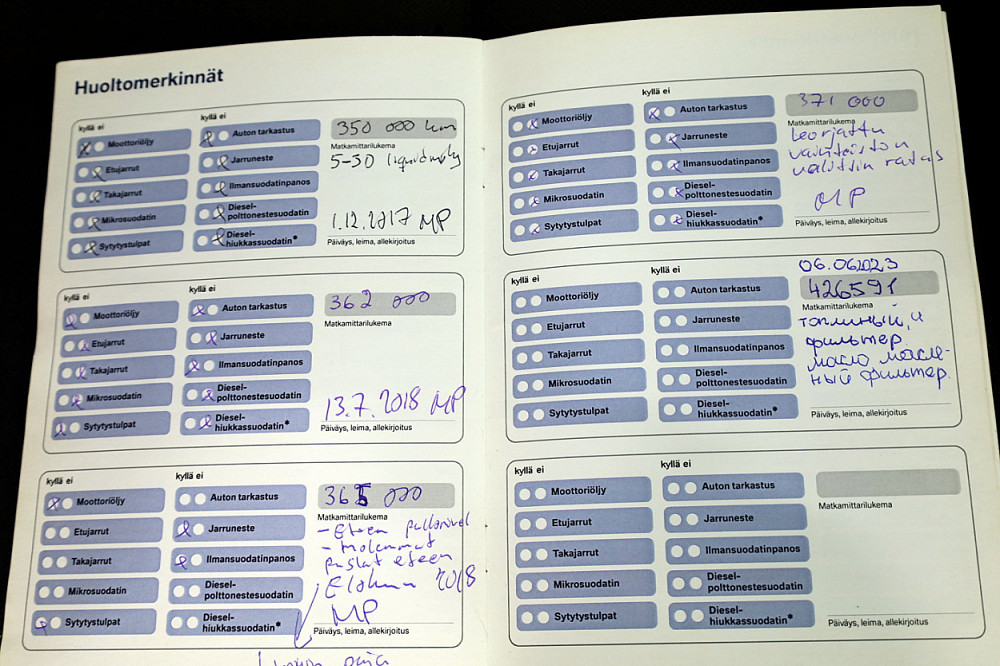 Huoltomerkinnät
kyllä ei
kyllä ei
Moottoriöljy
Auton tarkastus
350 000 km
Matkamittarilukema
Etujarrut
Jarruneste
5-30 liquimoly
Takajarrut
Ilmansuodatinpanos
Mikrosuodatin
Diesel-
polttonestesuodatin
1.12.2017 MP
Sytytystulpat
Diesel-
hiukkassuodatin*
Päiväys, leima, allekirjoitus
kyllä ei
kyllä ei
Moottoriöljy
Auton tarkastus
362 000
Matkamittarilukema
Etujarrut
Jarruneste
Takajarrut
Ilmansuodatinpanos
Mikrosuodatin
Diesel-
polttonestesuodatin
13.7.2018 MP
Sytytystulpat
Diesel-
hiukkassuodatin*
Päiväys, leima, allekirjoitus
kyllä ei
kyllä ei
Moottoriöljy
Auton tarkastus
365 000
Matkamittarilukema
Etujarrut
Jarruneste
- Eteen pallonivel
- molemmat
Takajarrut
Ilmansuodatinpanos
puslat eteen
Mikrosuodatin
Diesel-
polttonestesuodatin
Elokuu 2018
MP
Sytytystulpat
Diesel-
hiukkassuodatin*
Päiväys, leima, allekirjoitus
kyllä ei
kyllä ei
Moottoriöljy
Auton tarkastus
371 000
Matkamittarilukema
Etujarrut
Jarruneste
korjattu
vaihteiston
Takajarrut
Ilmansuodatinpanos
valitsin ratas
Mikrosuodatin
Diesel-
polttonestesuodatin
MP
Sytytystulpat
Diesel-
hiukkassuodatin*
Päiväys, leima, allekirjoitus
kyllä ei
kyllä ei
06.062023
Moottoriöljy
Auton tarkastus
426591
Matkamittarilukema
Etujarrut
Jarruneste
топлиный, й
фильтер
Takajarrut
Ilmansuodatinpanos
масло, масле-
ный фильтер.
Mikrosuodatin
Diesel-
polttonestesuodatin
Sytytystulpat
Diesel-
hiukkassuodatin*
Päiväys, leima, allekirjoitus
kyllä ei
kyllä ei
Moottoriöljy
Auton tarkastus
Matkamittarilukema
Etujarrut
Jarruneste
Takajarrut
Ilmansuodatinpanos
Mikrosuodatin
Diesel-
polttonestesuodatin
Sytytystulpat
Diesel-
hiukkassuodatin*
Päiväys, leima, allekirjoitus